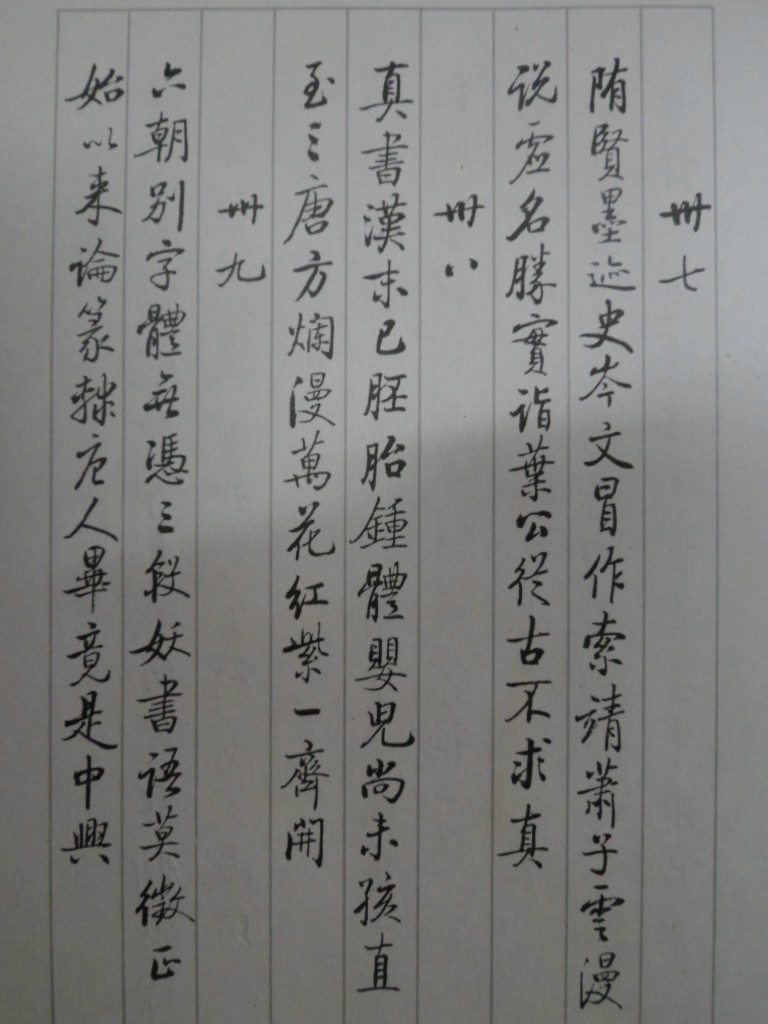 卅七
隋賢墨迹史岑文冒作索靖蕭子雲漫
说虚名勝實詣葉公從古不求真
卅八
真書漢末已胚胎鍾體嬰児尚未孩直
至三唐方爛漫萬花紅紫一齊開
卅九
六朝别字體無憑三段妖書語莫徵正
始以来論篆隸唐人畢竟是中興